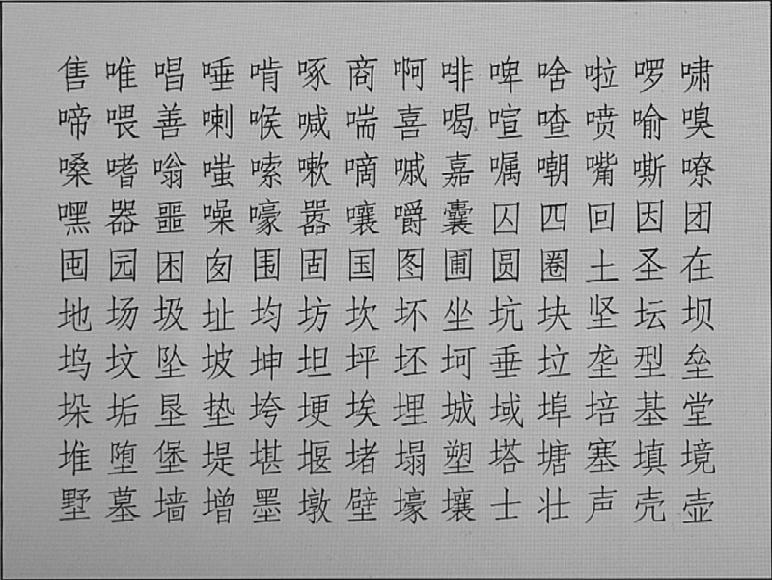 售唯唱唾啃啄商啊啡啤啥啦啰啸
啼喂善喇喉喊喘喜喝喧喳喷喻嗅
嗓嗜嗡嗤嗦嗽嘀嘁嘉嘱嘲嘴嘶嘹
嘿器噩噪嚎嚣嚷嚼囊囚四回因团
囤园困囱围固国图圃圆圈土圣在
地场圾址均坊坎坏坐坑块坚坛坝
坞坟坠坡坤坦坪坯坷垂垃垄型垒
垛垢垦垫垮埂埃埋城域埠培基堂
堆堕堡堤堪堰堵塌塑塔塘塞填境
墅墓墙增墨墩壁壕壤士壮声壳壶